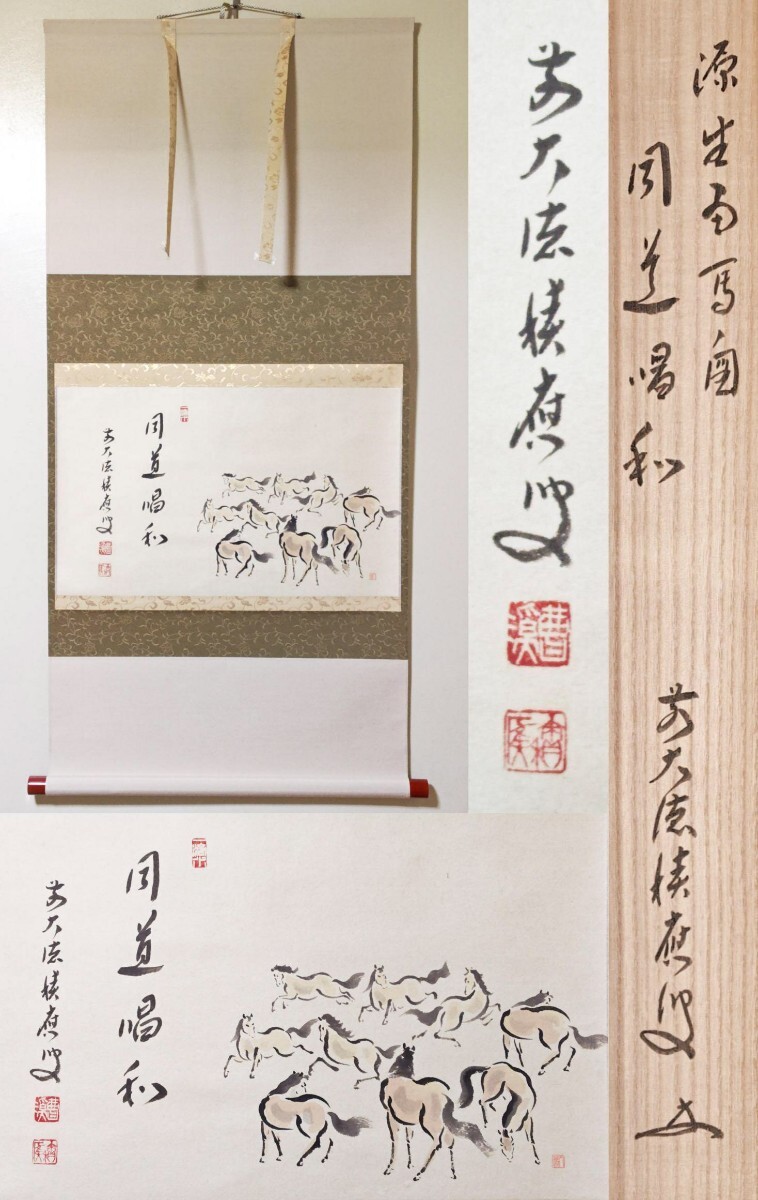 同道唱和
前大徳積應叟
前大徳積應叟
曹溪
源生
同道唱和
前大徳積應叟
同道唱和
前大徳積應叟
曹溪